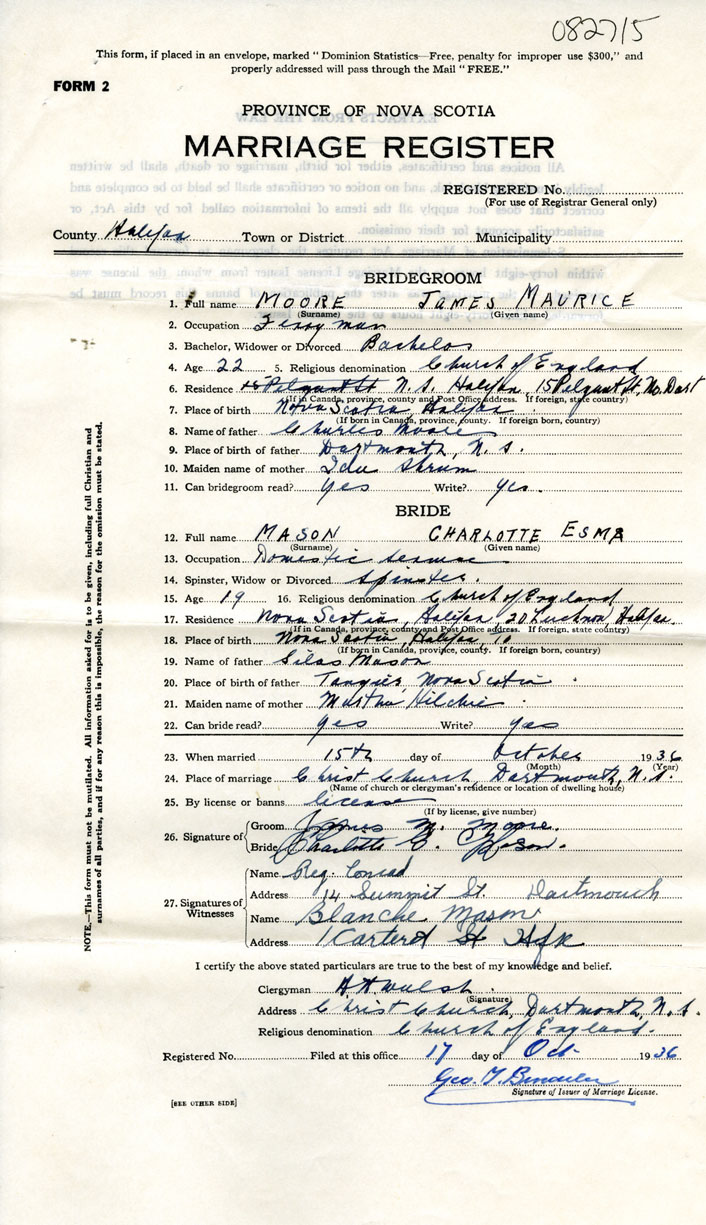 082715
This form, if placed in an envelope, marked "Dominion Statistics—Free, penalty for improper use $300," and
properly addressed will pass through the Mail "FREE."
FORM 2
PROVINCE OF NOVA SCOTIA
MARRIAGE REGISTER
REGISTERED No.
(For use of Registrar General only)
County Halifax Town or District Municipality
BRIDEGROOM
1. Full name MOORE JAMES MAURICE
(Surname) (Given name)
2. Occupation Ferryman
3. Bachelor, Widower or Divorced Bachelor
4. Age 22 5. Religious denomination Church of England
6. Residence N.S. Halifax, 15 Pelgant St, No. Dart
(If in Canada, province, county and Post Office address. If foreign, state country)
7. Place of birth Nova Scotia, Halifax
(If born in Canada, province, county. If foreign born, country)
8. Name of father Charles Moore
9. Place of birth of father Dartmouth, N.S.
10. Maiden name of mother Ida Shrum
11. Can bridegroom read? Yes Write? Yes.
BRIDE
12. Full name MASON CHARLOTTE ESMA
(Surname) (Given name)
13. Occupation Domestic
14. Spinster, Widow or Divorced Spinster.
15. Age 19 16. Religious denomination Church of England
17. Residence Nova Scotia, Halifax, 20 Lucknow, Halifax.
(If in Canada, province, county and Post Office address. If foreign, state country)
18. Place of birth Nova Scotia, Halifax,
(If born in Canada, province, county. If foreign born, country)
19. Name of father Silas Mason
20. Place of birth of father Tangier, Nova Scotia
21. Maiden name of mother Martha Hilchie
22. Can bride read? yes Write? yes
23. When married 15th day of October 1936
(Month) (Year)
24. Place of marriage Christ Church, Dartmouth, N.S.
(Name of church or clergyman's residence or location of dwelling house)
25. By license or banns license
(If by license, give number)
26. Signature of Groom James M. Moore.
Bride Charlotte E. Mason.
27. Signatures of Witnesses
Name Reg. Conrad
Address 14 Summit St. Dartmouth
Name Blanche Mason
Address 1 Carteret St Hfx
I certify the above stated particulars are true to the best of my knowledge and belief.
Clergyman
(Signature)
Address Christ Church, Dartmouth, N.S.
Religious denomination Church of England.
Registered No. Filed at this office 17 day of Oct. 1936
Geo.
Signature of Issuer of Marriage License.
[SEE OTHER SIDE]
NOTE.—This form must not be mutilated. All information asked for is to be given, including full Christian and
surnames of all parties, and if for any reason this is impossible, the reason for the omission must be stated.